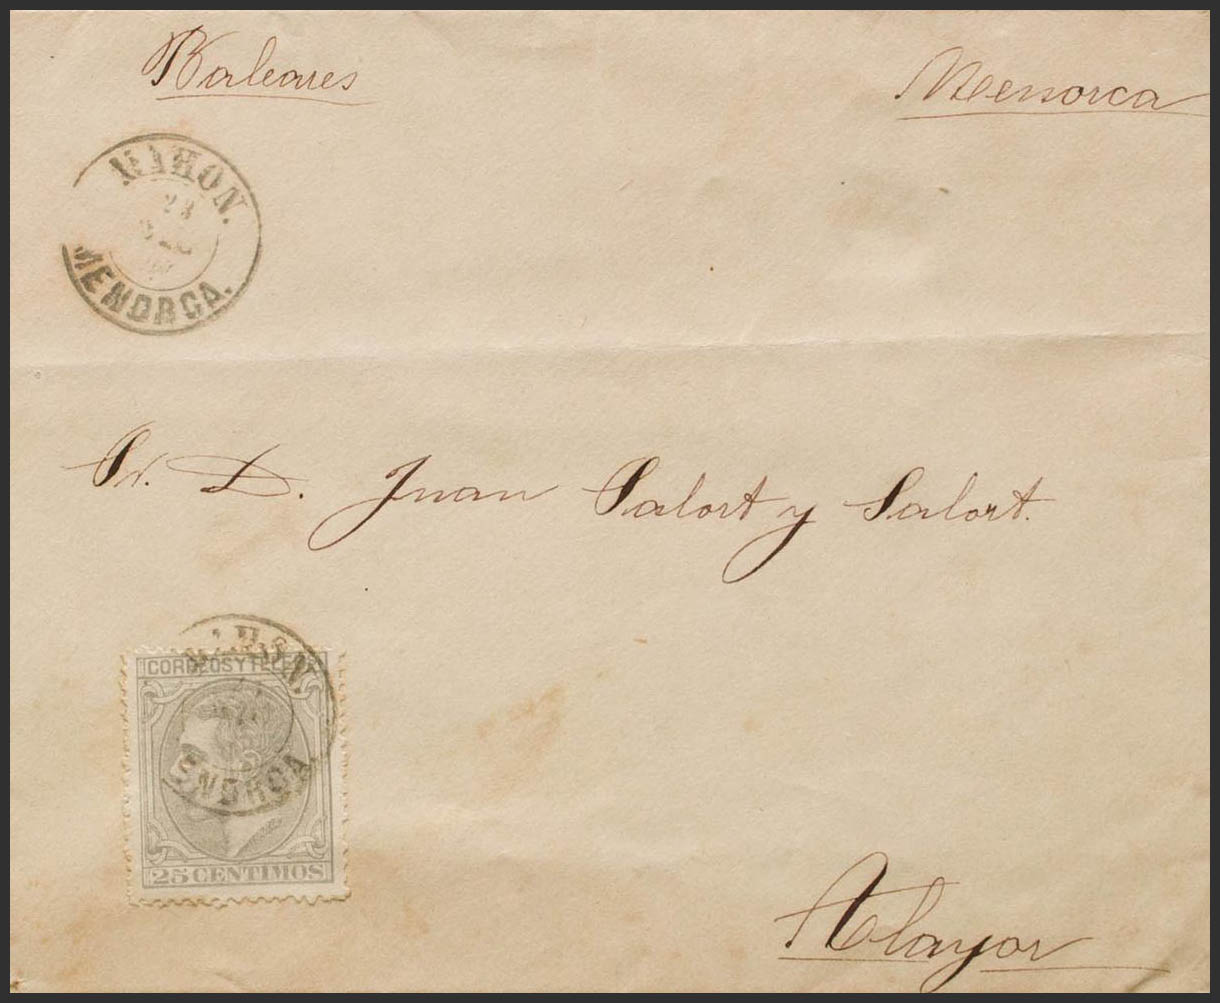 Baleares
Menorca
MAHON.
23
MENORCA.
Sr. D. Juan Salort y Salort.
CORREOS Y TELE
25 CENTIMOS
Alayor